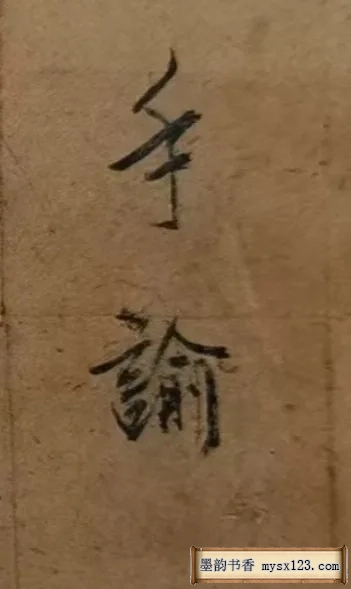 手諭
墨韵书香 mysx123.com